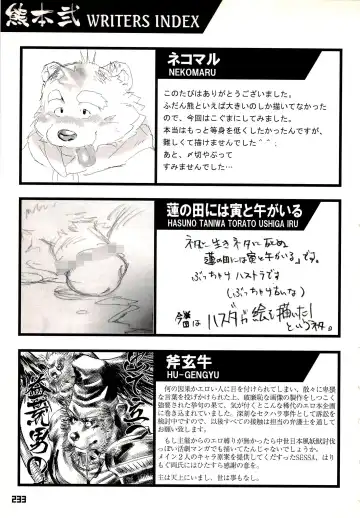 熊本弐 WRITERS INDEX
ネコマル
NEKOMARU
このたびはありがとうございました。
ふだん熊といえば大きいのしか描いてなかった
ので、今回はこぐまにしてみました。
本当はもっと等身を低くしたかったんですが、
難しくて描けませんでした＾＾；
あと、〆切やぶって
すみませんでした…
蓮の田には寅と午がいる
HASUNO TANIWA TORATO USHIGA IRU
ネタに生きネタに死ぬ
蓮の田には寅と午がいる です。
ぶっちゃけハストラです
(ぶっちゃけ右いな)
今回は ハスダが絵を描いた!
という事ね。
斧玄牛
HU-GENGYU
何の因果かエロい人に目を付けられてしまい、散々に卑猥
な言葉を投げかけられた上、破廉恥な画像の製作をしつこく
強要された挙句の果て、気が付くとこんな稀代のエロ本企画
に巻き込まれていました。深刻なセクハラ事件として訴訟を
検討中ですので、以後すべての接触は担当の弁護士を通して
お願い致します。
もし主猿からのエロ縛りが無かったら中世日本風妖獣討伐
っぽい活劇マンガでも描いてたんじゃないでしょうか。
メイン2人のキャラ原案を提供してくださったSESSA、は
りもぐ両氏にはひたすら感謝の意を。
主は天上にいまし、世は事もなし。
荒男
233